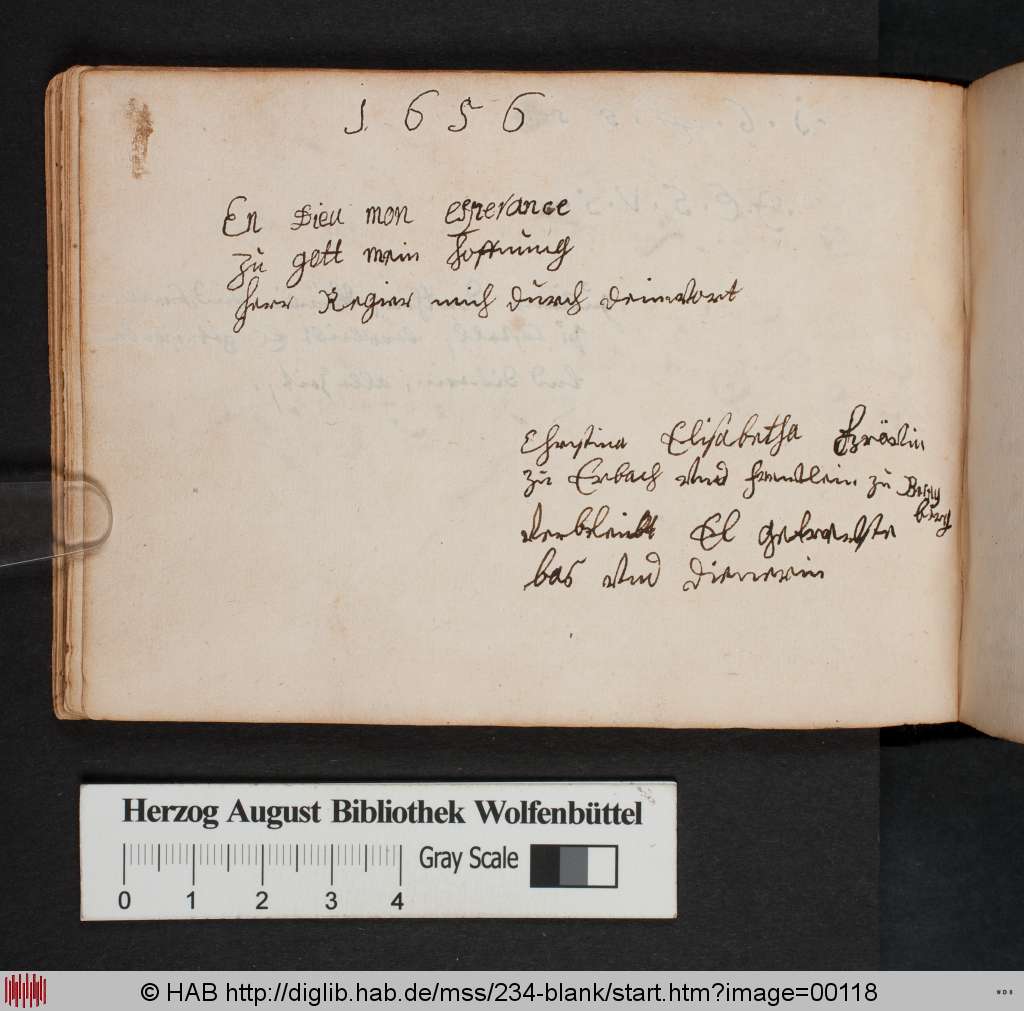 1656
En Dieu mon esperance
Zu gott mein hoffnung
Herr Regier mich durch dein wort
Christina Elisabetha Gräвin
zu Erbach vnd freulein zu Breuberg
Verbleibt El getreuste
bas vnd dienerin
Herzog August Bibliothek Wolfenbüttel
Gray Scale
0 1 2 3 4
© HAB http://diglib.hab.de/mss/234-blank/start.htm?image=00118